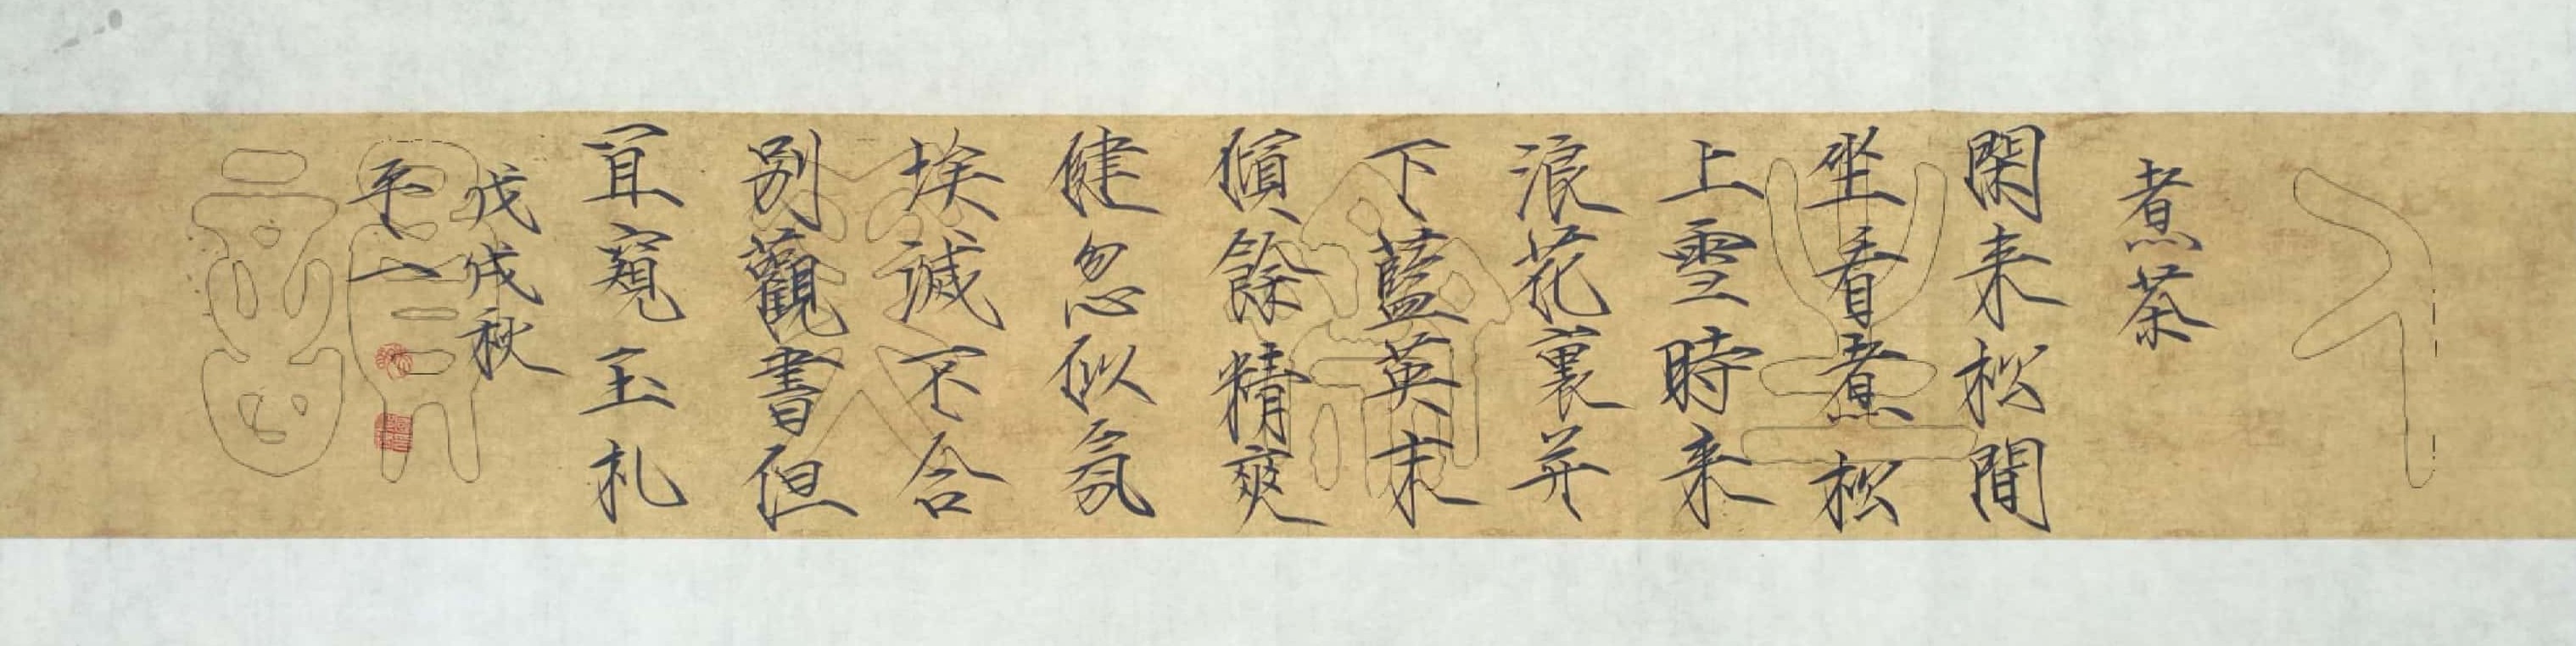 煮茶
閑来松間
坐看煮松
上雪時来
浪花裏并
下藍英末
傾餘精爽
健忽似氛
埃滅不合
別觀書但
宜窺玉札
戊戌秋
平一